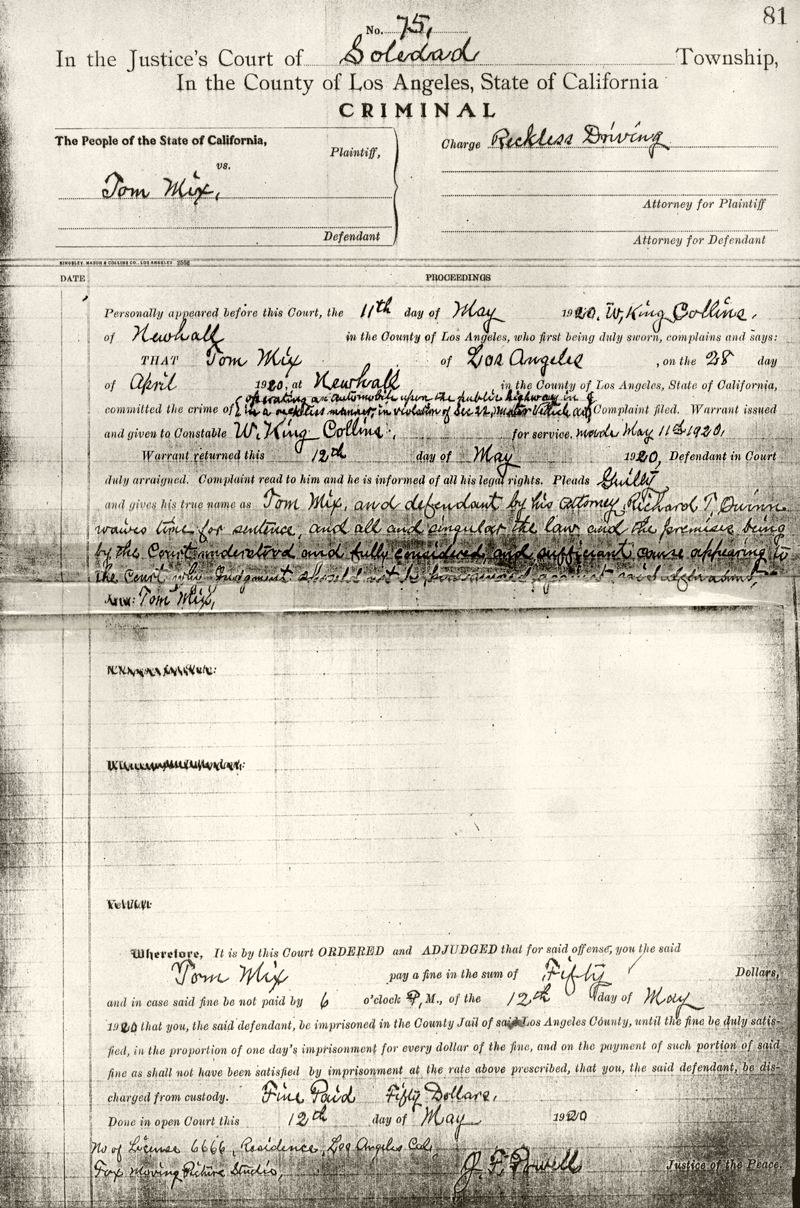 81
No. 75,
In the Justice's Court of Soledad Township,
In the County of Los Angeles, State of California
CRIMINAL
The People of the State of California,
Plaintiff,
vs.
Tom Mix,
Defendant
Charge Reckless Driving
Attorney for Plaintiff
Attorney for Defendant
KINGSLEY, MASON & COLLINS CO., LOS ANGELES
DATE PROCEEDINGS
Personally appeared before this Court, the 11th day of May 1920, W, King Collins,
of Newhall in the County of Los Angeles, who first being duly sworn, complains and says:
THAT Tom Mix of Los Angeles, on the 28 day
of April 1920, at Newhall in the County of Los Angeles, State of California,
operating an automobile upon the public highway in
committed the crime of in a reckless manner, in violation of Sec 22, Motor Vehicle act Complaint filed. Warrant issued
and given to Constable W. King Collins, for service. made May 11th 1920,
Warrant returned this 12th day of May 1920, Defendant in Court
duly arraigned. Complaint read to him and he is informed of all his legal rights. Pleads Guilty
and gives his true name as Tom Mix, and defendant by his attorney, Richard T, Quinn
waives time for sentence, and all and singular the law and the premises being
by the Court understood and fully considered, and sufficient cause appearing to
the Court why Judgment should not be pronounced against said defendant,
Tom Mix,
Wherefore, It is by this Court ORDERED and ADJUDGED that for said offense, you the said
Tom Mix pay a fine in the sum of Fifty Dollars,
and in case said fine be not paid by 6 o'clock P, M., of the 12th day of May
1920 that you, the said defendant, be imprisoned in the County Jail of said Los Angeles County, until the fine be duly satis-
fied, in the proportion of one day's imprisonment for every dollar of the fine, and on the payment of such portion of said
fine as shall not have been satisfied by imprisonment at the rate above prescribed, that you, the said defendant, be dis-
charged from custody. Fine Paid Fifty Dollars,
Done in open Court this 12th day of May 1920
No of License 6666, Residence, Los Angeles Cal,
Fox Moving Picture Studio,
J. F. Powell Justice of the Peace.